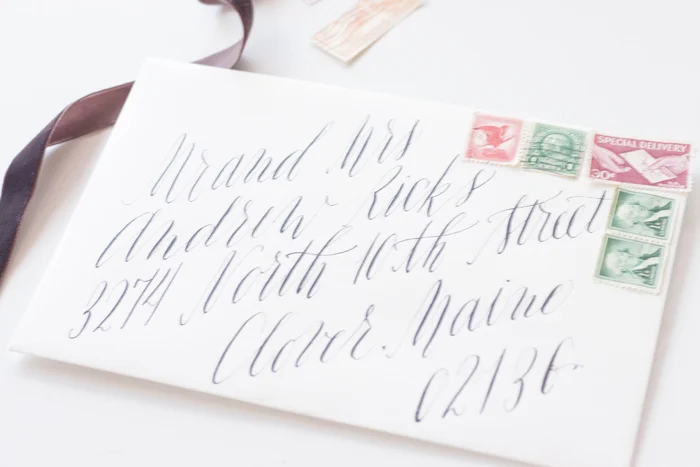 Mr and Mrs
Andrew Ricks
3274 North 10th Street
Clover, Maine
02136
SPECIAL DELIVERY
30¢